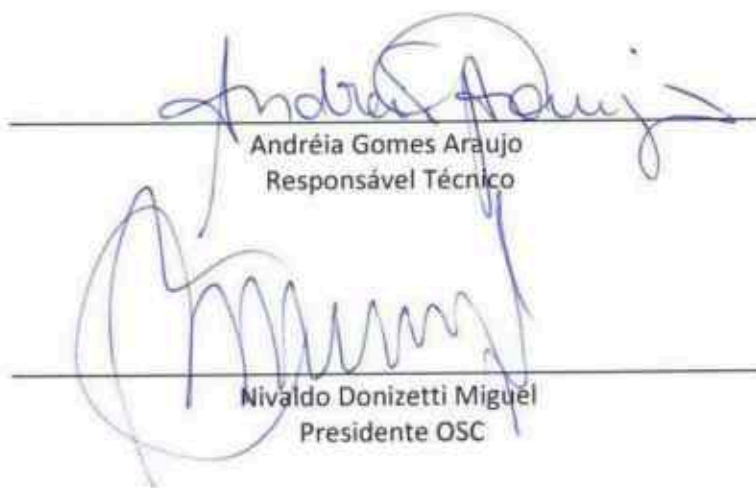 Andréia Araujo
Andréia Gomes Araujo
Responsável Técnico
Nivaldo Donizetti Miguel
Presidente OSC